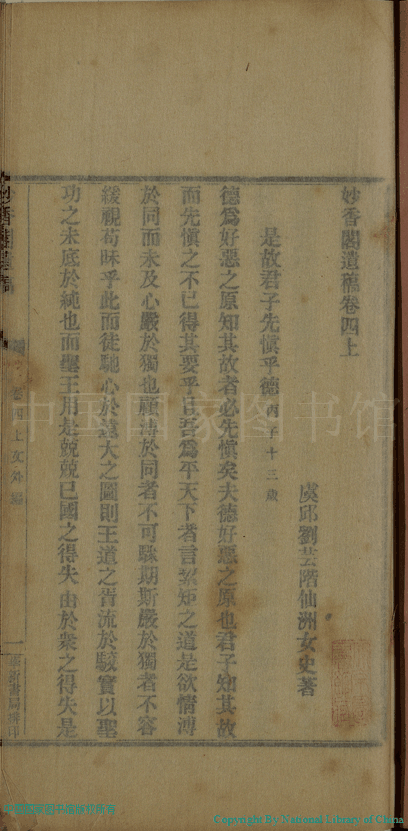 妙香閣遺稿卷四上
虞邱劉芸階仙洲女史著
是故君子先慎乎德 丙子十三歲
德爲好惡之原知其故者必先慎矣夫德好惡之原也君子知其故
而先慎之不已得其要乎且吾爲平天下者言絜矩之道是欲情溥
於同而未及心嚴於獨也顧溥於同者不可驟期斯嚴於獨者不容
緩視苟昧乎此而徒馳心於遠大之圖則王道之旁流於驳實以聖
功之未底於純也而聖王用是兢兢已國之得失由於衆之得失是
卷四上文外編
一
書局排印
中国国家图书馆
Copyright By National Library of China